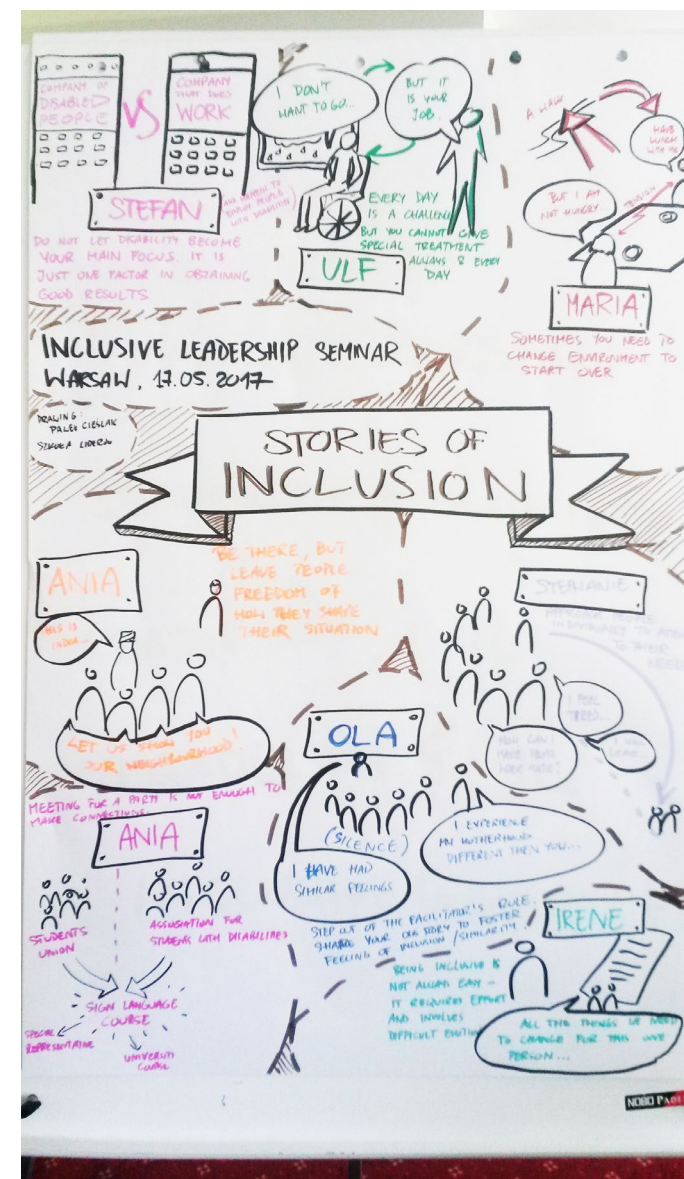 COMPANY OF
DISABLED
PEOPLE
VS
COMPANY
THAT DOES
WORK
STEFAN
AND HAPPEN TO
EMPLOY PEOPLE
WITH DISABILITIES
DO NOT LET DISABILITY BECOME
YOUR MAIN FOCUS. IT IS
JUST ONE FACTOR IN OBTAINING
GOOD RESULTS
I DON'T
WANT TO GO...
BUT IT
IS YOUR
JOB.
EVERY DAY
IS A CHALLENGE
BUT YOU CANNOT GIVE
SPECIAL TREATMENT
ALWAYS & EVERY
DAY
ULF
HAVE
LUNCH
WITH ME
BUT I AM
NOT HUNGRY
MARIA
SOMETIMES YOU NEED TO
CHANGE ENVIRONMENT TO
START OVER
INCLUSIVE LEADERSHIP SEMINAR
WARSAW, 17.05.2017
DRAWING:
STORIES OF
INCLUSION
ANIA
THIS IS
INDIA...
BE THERE, BUT
LEAVE PEOPLE
FREEDOM OF
HOW THEY SHAPE
THEIR SITUATION
LET US SHOW YOU
OUR NEIGHBOURHOOD!
STEPHANIE
PEOPLE
INDIVIDUALLY TO
TO THEIR
NEEDS
I FEEL
TIRED...
HOW CAN I
OLA
(SILENCE)
I HAVE HAD
SIMILAR FEELINGS
I EXPERIENCE
MY MOTHERHOOD
DIFFERENT THEN YOU...
STEP OUT OF THE FACILITATOR'S ROLE.
SHARE YOUR OWN STORY TO FOSTER
FEELING OF INCLUSION/SIMILARITY!
MEETING FOR A PARTY IS NOT ENOUGH TO
MAKE CONNECTIONS.
ANIA
STUDENTS
UNION
ASSOCIATION FOR
STUDENTS WITH DISABILITIES
SIGN LANGUAGE
COURSE
SPECIAL
REPRESENTATIVE
UNIVERSITY
COURSE
IRENE
BEING INCLUSIVE IS
NOT ALWAYS EASY -
IT REQUIRES EFFORT
AND INVOLVES
DIFFICULT EMOTIONS
ALL THE THINGS WE NEED
TO CHANGE FOR THIS ONE
PERSON...
NOBO